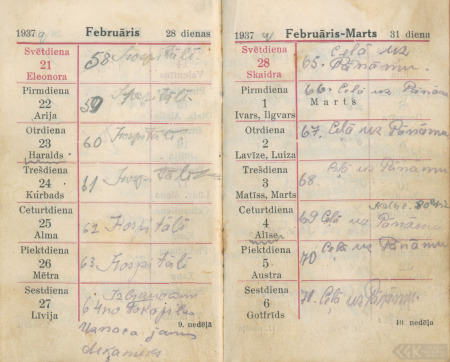 1937 g Februāris 28 dienas
Svētdiena
21
Eleonora
58 Hospitālī
Pirmdiena
22
Arija
59 Hospitālī
Otrdiena
23
Haralds
60 Hospitālī
Trešdiena
24
Kurbads
61 Hospitālī
Ceturtdiena
25
Alma
62 Hospitālī
Piektdiena
26
Mētra
63 Hospitālī
Sestdiena
27
Līvija
64
9. nedēļa
1937 g Februāris-Marts 31 diena
Svētdiena
28
Skaidra
65. Ceļā uz
Pānāmu.
Pirmdiena
1
Ivars, Ilgvars
66. Ceļā uz Pānāmu
Marts
Otrdiena
2
Lavīze, Luiza
67. Ceļā uz Pānāmu
Trešdiena
3
Matīss, Marts
Ceļā uz Pānamu
68.
Ceturtdiena
4
Alise
69 Ceļā uz
Pānāmu
Piektdiena
5
Austra
70 Ceļā uz Pānāmu
Sestdiena
6
Gotfrīds
71. Ceļā uz Pānamu.
10. nedēļa